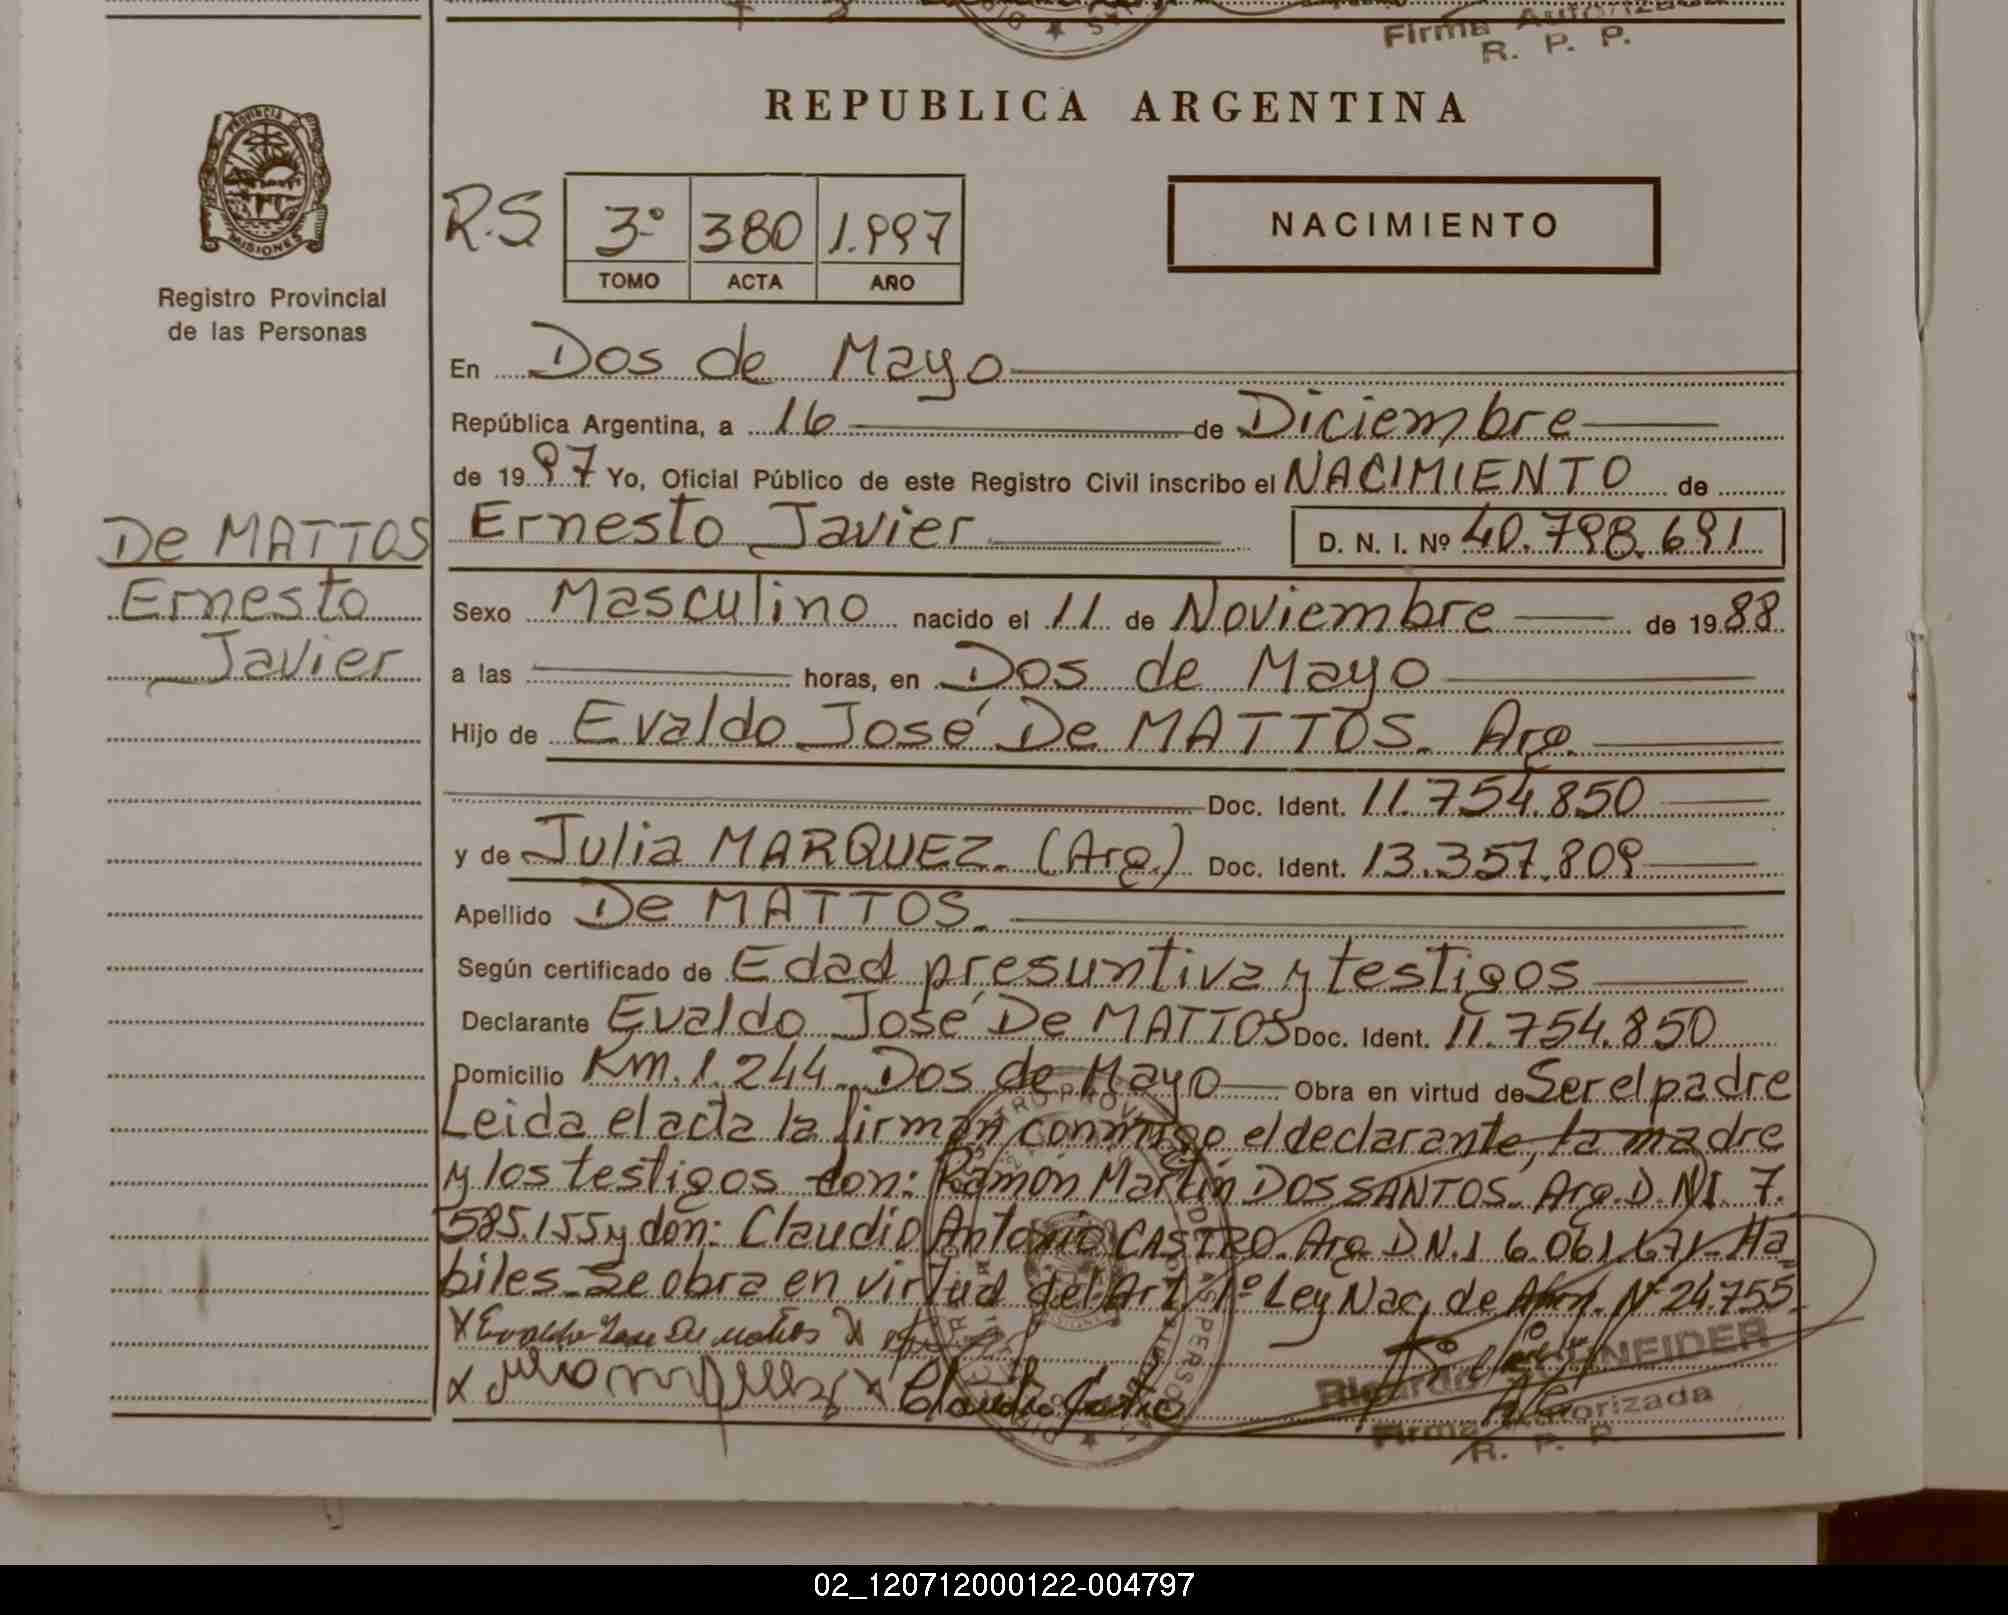 Firma Autorizada
R. P. P.
REPUBLICA ARGENTINA
PROVINCIA DE
MISIONES
Registro Provincial
de las Personas
R.S
3º 380 1.997
TOMO ACTA AÑO
NACIMIENTO
En Dos de Mayo
República Argentina, a 16 de Diciembre
de 1997 Yo, Oficial Público de este Registro Civil inscribo el NACIMIENTO de
De MATTOS
Ernesto
Javier
Ernesto Javier D. N. I. Nº 40.798.691
Sexo Masculino nacido el 11 de Noviembre de 1988
a las horas, en Dos de Mayo
Hijo de Evaldo José De MATTOS. Arg.
Doc. Ident. 11.754.850
y de Julia MARQUEZ. (Arg.) Doc. Ident. 13.357.809
Apellido De MATTOS.
Según certificado de Edad presuntiva y testigos
Declarante Evaldo José De MATTOS Doc. Ident. 11.754.850
Domicilio Km. 1.244 Dos de Mayo Obra en virtud de Ser el padre
Leida el acta la firman conmigo el declarante, la madre
y los testigos don: Ramón Martín DOS SANTOS. Arg. D.N.I. 7.
585.155 y don: Claudio Antonio CASTRO. Arg D.N.I 6.061.671 - Há
biles. Se obra en virtud del Art. 1º Ley Nac. de Nº 24.755.
X Evaldo Jose De mattos X
X X Claudio Castro
Ricardo SCHNEIDER
Firma Autorizada
R. P. P.
02_120712000122-004797